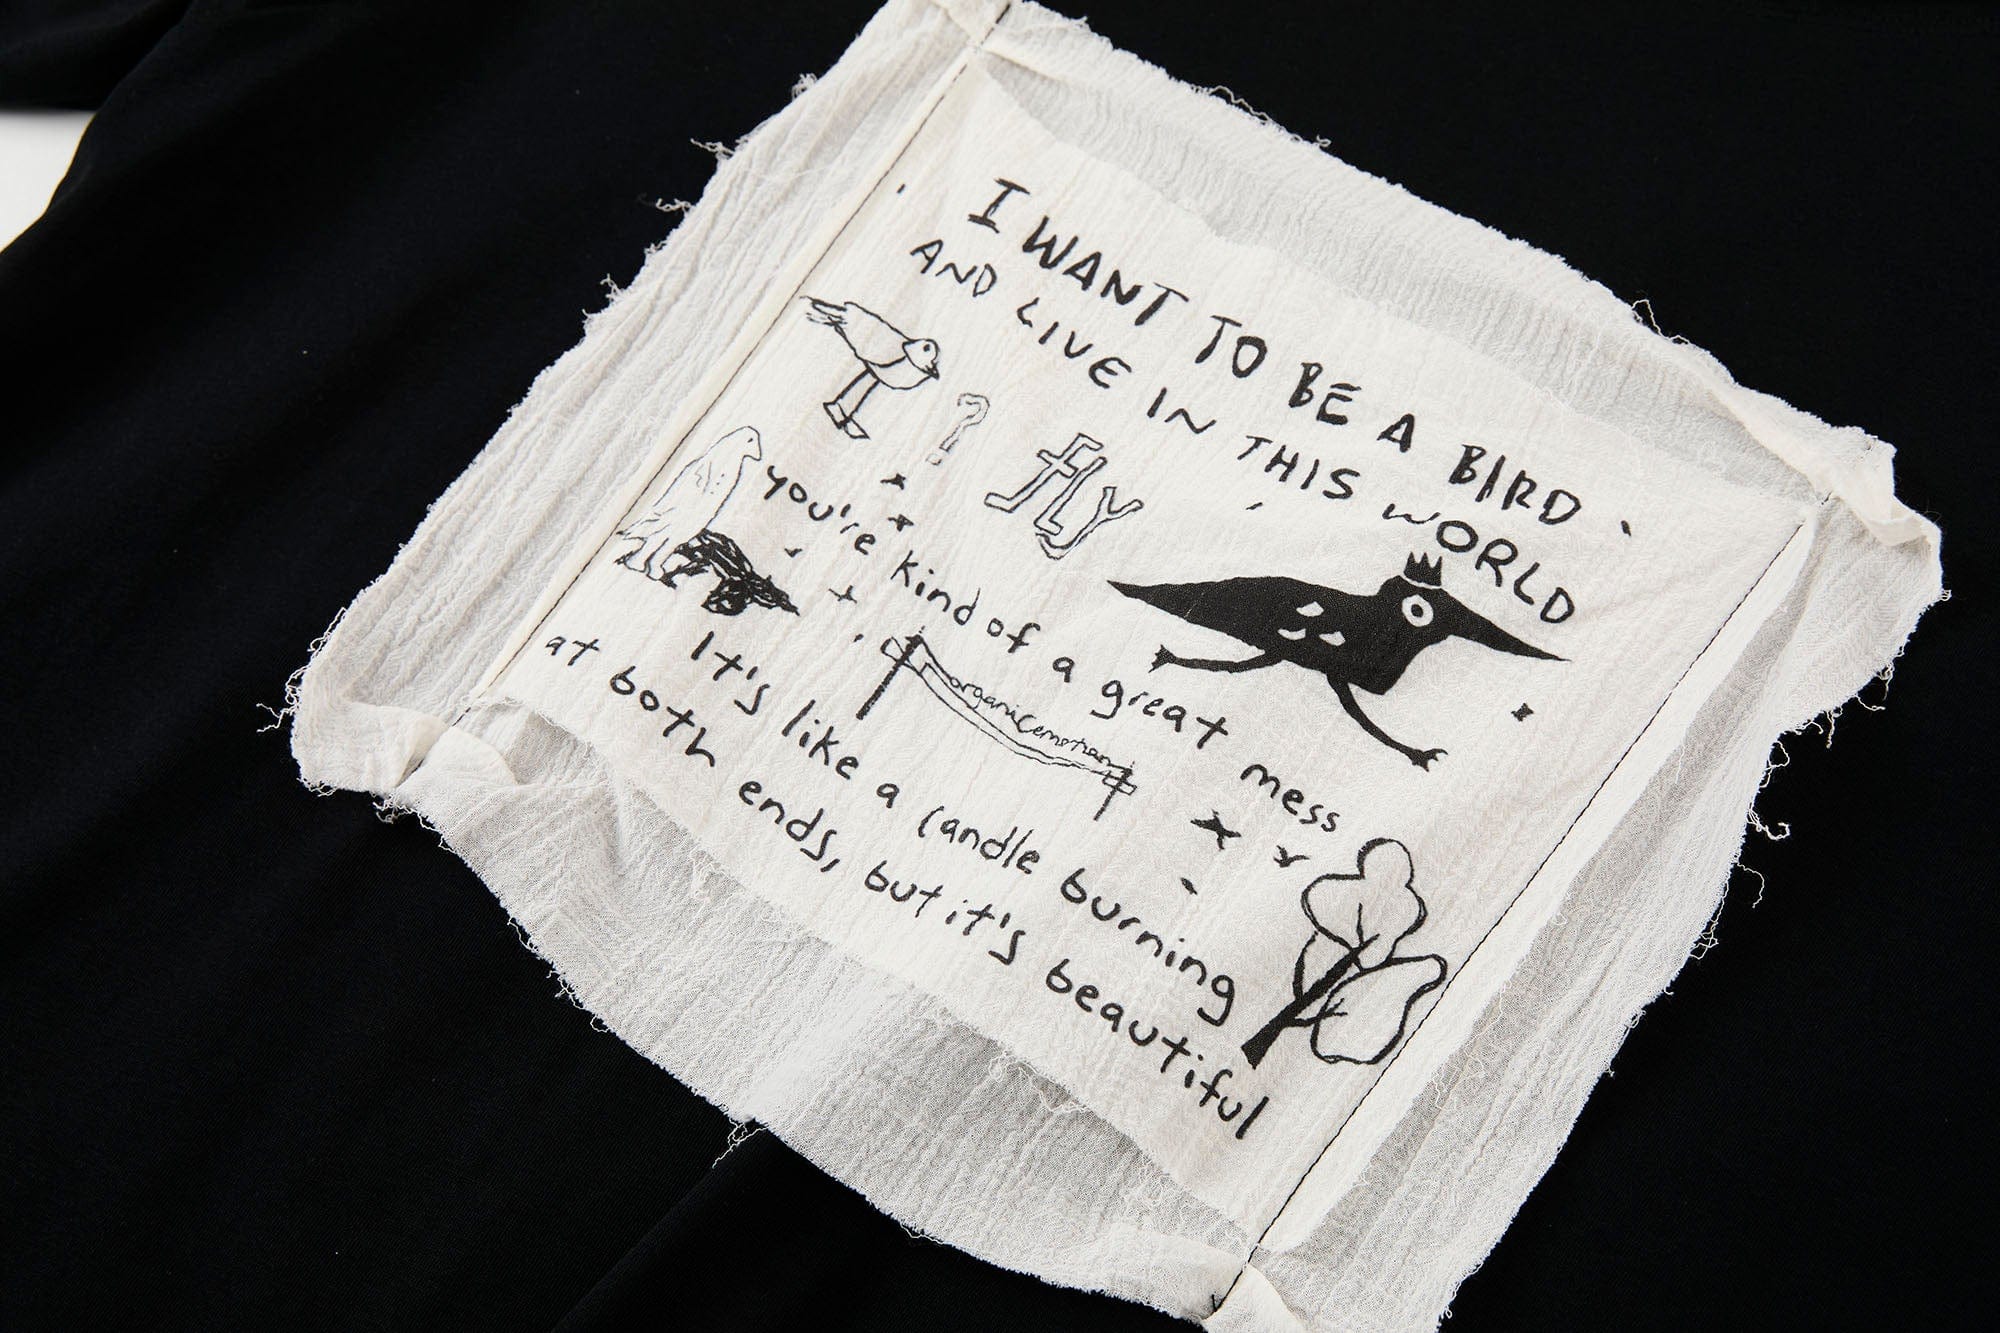 I WANT TO BE A BIRD.
AND LIVE IN THIS WORLD
?
fly
you're kind of a great mess
organicemotion
It's like a candle burning
at both ends, but it's beautiful